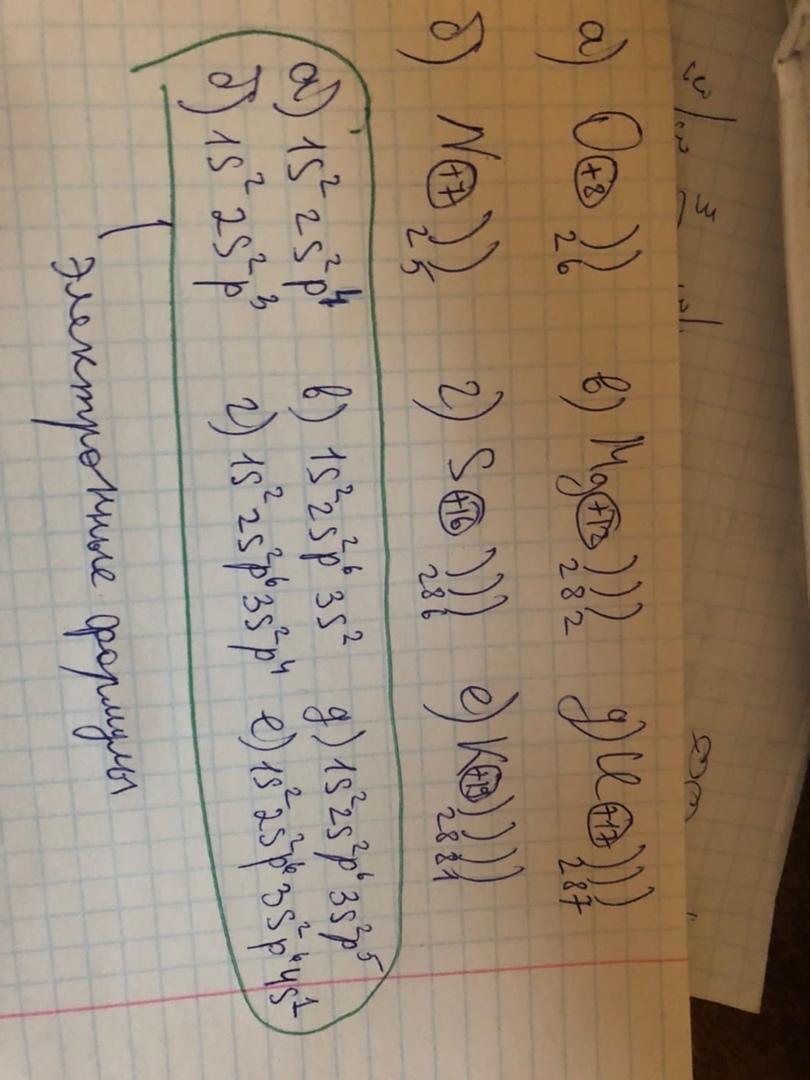 а) O +8 ) ) 2 6 в) Mg +12 ) ) ) 2 8 2 д) Cl +17 ) ) ) 2 8 7
б) N +7 ) ) 2 5 г) S +16 ) ) ) 2 8 6 е) K +19 ) ) ) ) 2 8 8 1
а) 1s² 2s²p⁴ в) 1s² 2s²p⁶ 3s² д) 1s² 2s²p⁶ 3s²p⁵
б) 1s² 2s²p³ г) 1s² 2s²p⁶ 3s²p⁴ е) 1s² 2s²p⁶ 3s²p⁶ 4s¹
Электронные формулы